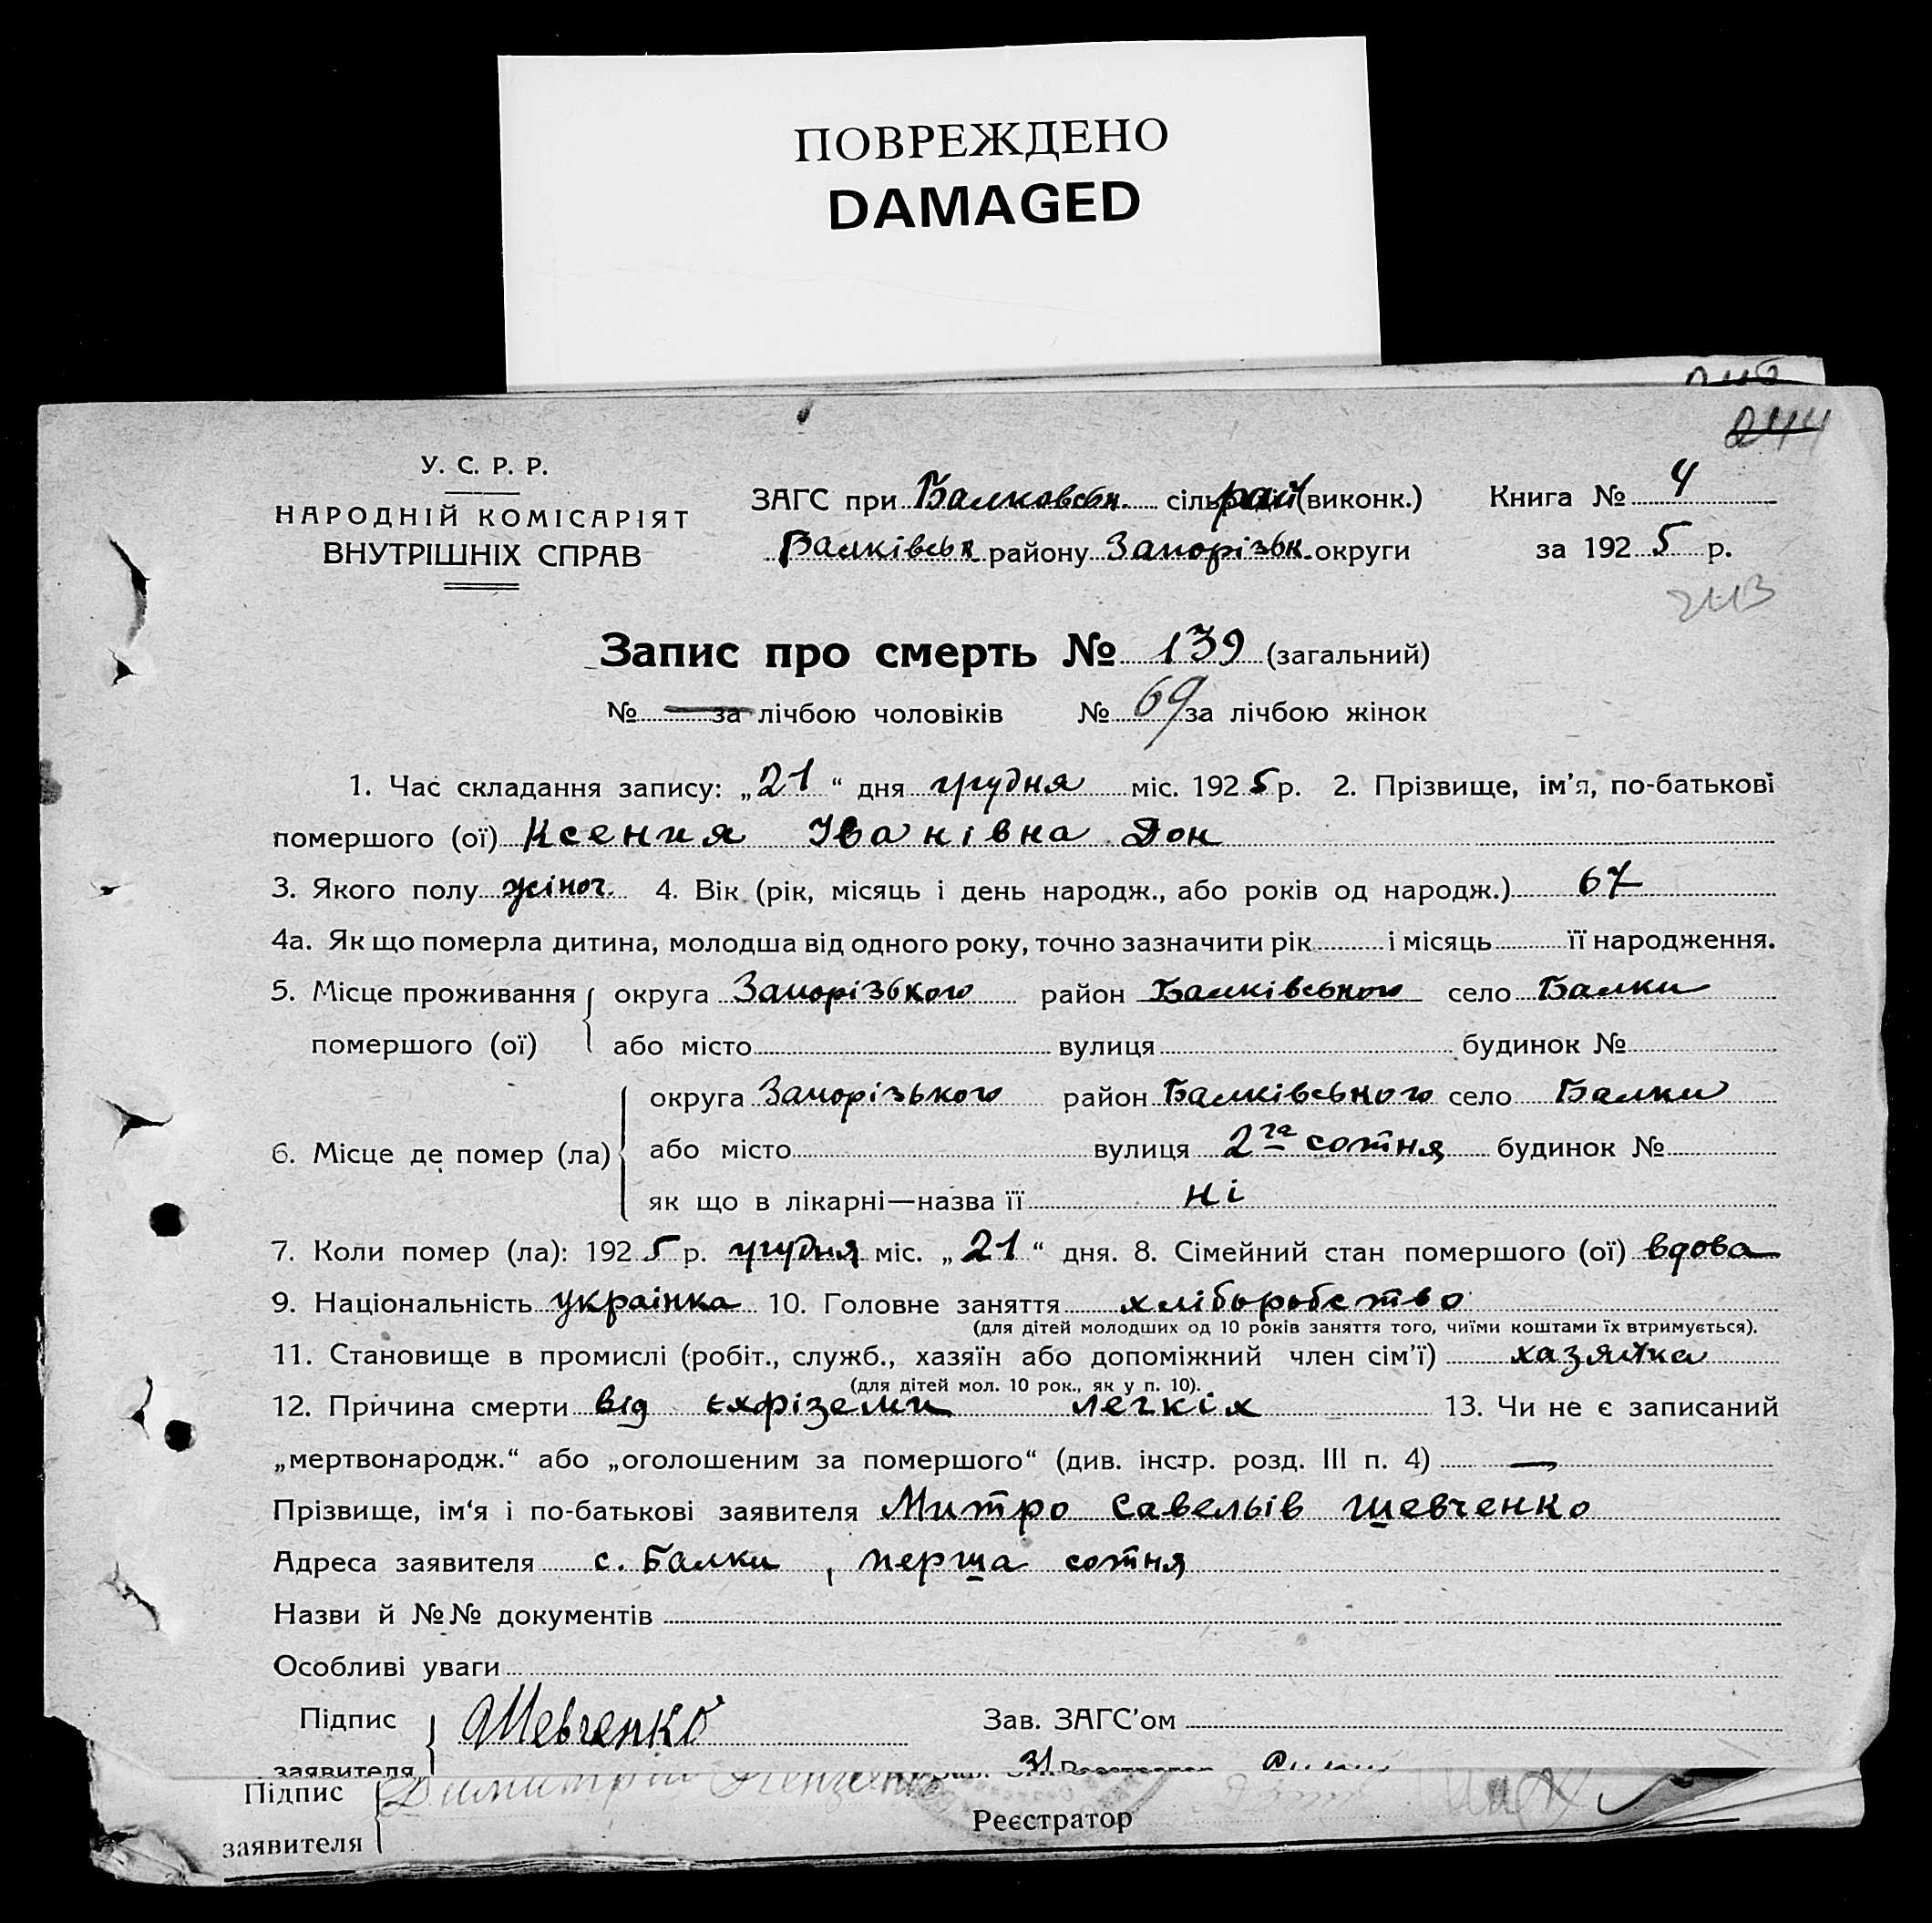 ПОВРЕЖДЕНО
DAMAGED
244
У. С. Р. Р.
НАРОДНІЙ КОМІСАРІЯТ
ВНУТРІШНІХ СПРАВ
ЗАГС при Балковськ. сільрай (виконк.) Книга № 4
Балківськ району Запорізьк. округи за 1925 р.
243
Запис про смерть № 139 (загальний)
№ — за лічбою чоловіків № 69 за лічбою жінок
1. Час складання запису: „21“ дня грудня міс. 1925 р. 2. Прізвище, ім’я, по-батькові
помершого (ої) Ксения Іванівна Дон
3. Якого полу жіноч. 4. Вік (рік, місяць і день народж., або років од народж.) 67
4а. Як що померла дитина, молодша від одного року, точно зазначити рік і місяць її народження.
5. Місце проживання округа Запорізького район Балківського село Балки
помершого (ої) або місто вулиця будинок №
округа Запорізького район Балківського село Балки
6. Місце де помер (ла) або місто вулиця 2га сотня будинок №
як що в лікарні—назва її ні
7. Коли помер (ла): 1925 р. грудня міс. „21“ дня. 8. Сімейний стан помершого (ої) вдова
9. Національність українка 10. Головне заняття хліборобство
(для дітей молодших од 10 років заняття того, чиїми коштами їх втримується).
11. Становище в промислі (робіт., служб., хазяїн або допоміжний член сім’ї) хазяйка
(для дітей мол. 10 рок., як у п. 10).
12. Причина смерти від ехфіземи легкіх 13. Чи не є записаний
„мертвонародж.“ або „оголошеним за помершого“ (див. інстр. розд. III п. 4) —
Прізвище, ім‘я і по-батькові заявителя Митро Савельів Шевченко
Адреса заявителя с. Балки, перша сотня
Назви й №№ документів
Особливі уваги
Підпис Шевченко Зав. ЗАГС’ом
заявителя
Підпис Димитрий
заявителя Реєстратор